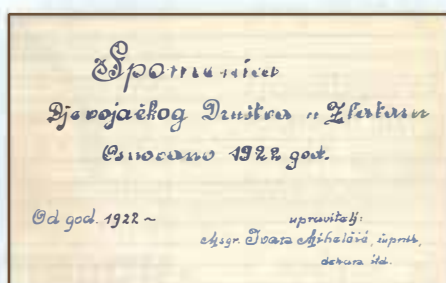 Spomenica
Djevojačkog Društva u Zlataru
Osnovano 1922 god.
Od god. 1922 ~
upravitelj:
Msgr. Ivan Mihalčić, župnik,
dekan itd.